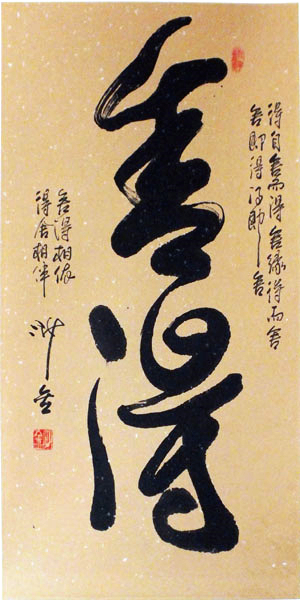 舍得
得自舍而得舍缘得而舍
舍即得得即舍
舍得相依
得舍相伴